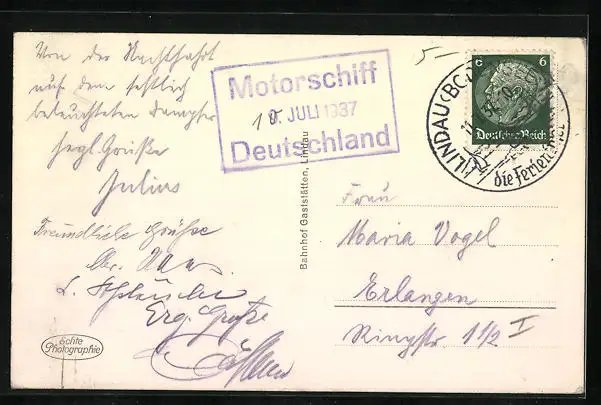 Von der Nachtfahrt
auf dem festlich
beleuchteten Dampfer
herzl. Grüße
Julius
Freundliche Grüße
Erg. Grüße
Echte
Photographie
Motorschiff
10. JULI 1937
Deutschland
Bahnhof Gaststätten, Lindau
5-
6 6
Deutsches Reich
LINDAU (BODENSEE)
die Ferien
Frau
Maria Vogel
Erlangen
Ringstr 1 1/2 I